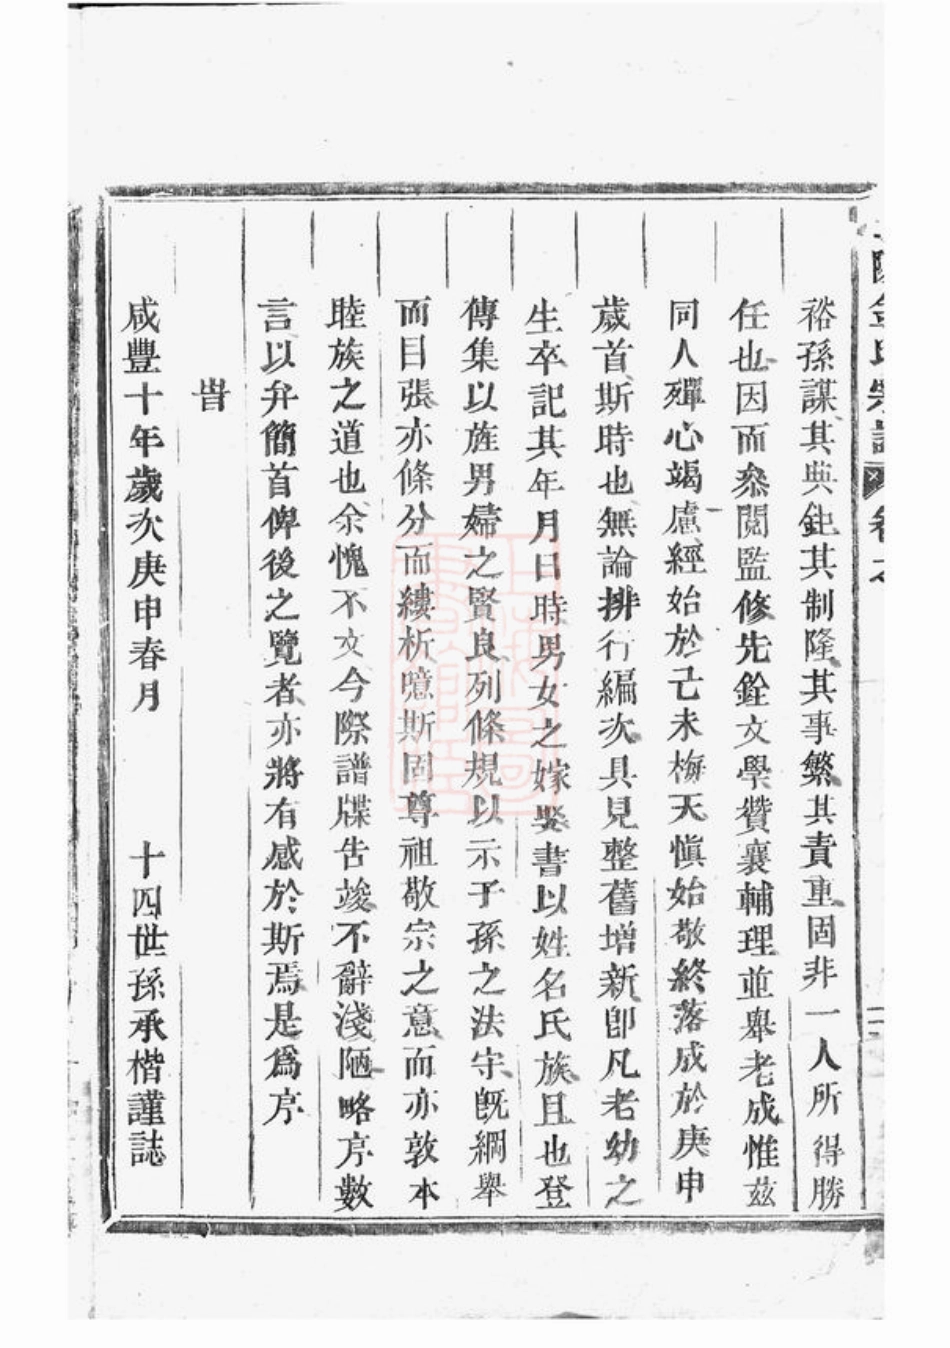 裕孫謀其典鉅其制隆其事繁其責重固非一人所得勝
任也因而叅閱監修先銓文學贊襄輔理並舉老成惟茲
同人殫心竭慮經始於己未梅天愼始敬終落成於庚申
歲首斯時也無論排行編次具見整舊增新卽凡老幼之
生卒記其年月日時男女之嫁娶書以姓名氏族且也登
傳集以旌男婦之賢良列條規以示子孫之法守旣綱舉
而目張亦條分而縷析噫斯固尊祖敬宗之意而亦敦本
睦族之道也余愧不文今際譜牒告竣不辭淺陋略序數
言以弁簡首俾後之覽者亦將有感於斯焉是爲序
旹
咸豐十年歲次庚申春月 十四世孫承楷謹誌